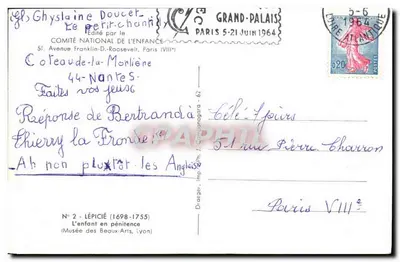 Ghyslaine Doucet
Le petit chantilly
Édité par le
COMITÉ NATIONAL DE L'ENFANCE
51, Avenue Franklin-D.-Roosevelt, Paris (VIIIe)
Coteau-de-la-Morlière
44-Nantes
Faites vos jeux
Réponse de Bertrand à
Thierry la Fronde:
Ah non plutôt les Anglais
N° 2 - LÉPICIÉ (1698-1755)
L'enfant en pénitence
(Musée des Beaux-Arts, Lyon)
GRAND-PALAIS
PARIS 5-21 JUIN 1964
5-6
1964
LOIRE ATLANTIQUE
0,20
Télé 7 jours
51 rue Pierre Charron
Paris VIIIe